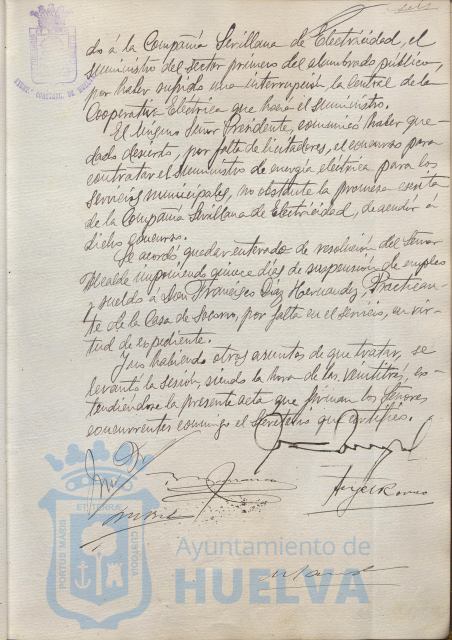 seis
do á la Compañía Sevillana de Electricidad, el
suministro del sector primero del alumbrado público,
por haber sufrido una interrupción la Central de la
Cooperativa Eléctrica que hacía el suministro.
El mismo Señor Presidente, comunicó haber que-
dado desierto, por falta de licitadores, el concurso para
contratar el suministro de energía eléctrica para los
servicios municipales, no obstante la promesa escrita
de la Compañía Sevillana de Electricidad, de acudir á
dicho concurso.
Se acordó quedar enterado de resolución del Señor
Alcalde imponiendo quince días de suspensión de empleo
y sueldo á Don Francisco Díaz Hernández, Practican-
te de la Casa de Socorro, por falta en el servicio, en vir-
tud de expediente.
Y no habiendo otros asuntos de que tratar, se
levantó la sesión, siendo la hora de las veintitrés, ex-
tendiéndose la presente acta que firman los Señores
concurrentes conmigo el Secretario que certifico.
PORTUS MARIS
ET TERRAE
CUSTODIA
Ayuntamiento de
HUELVA